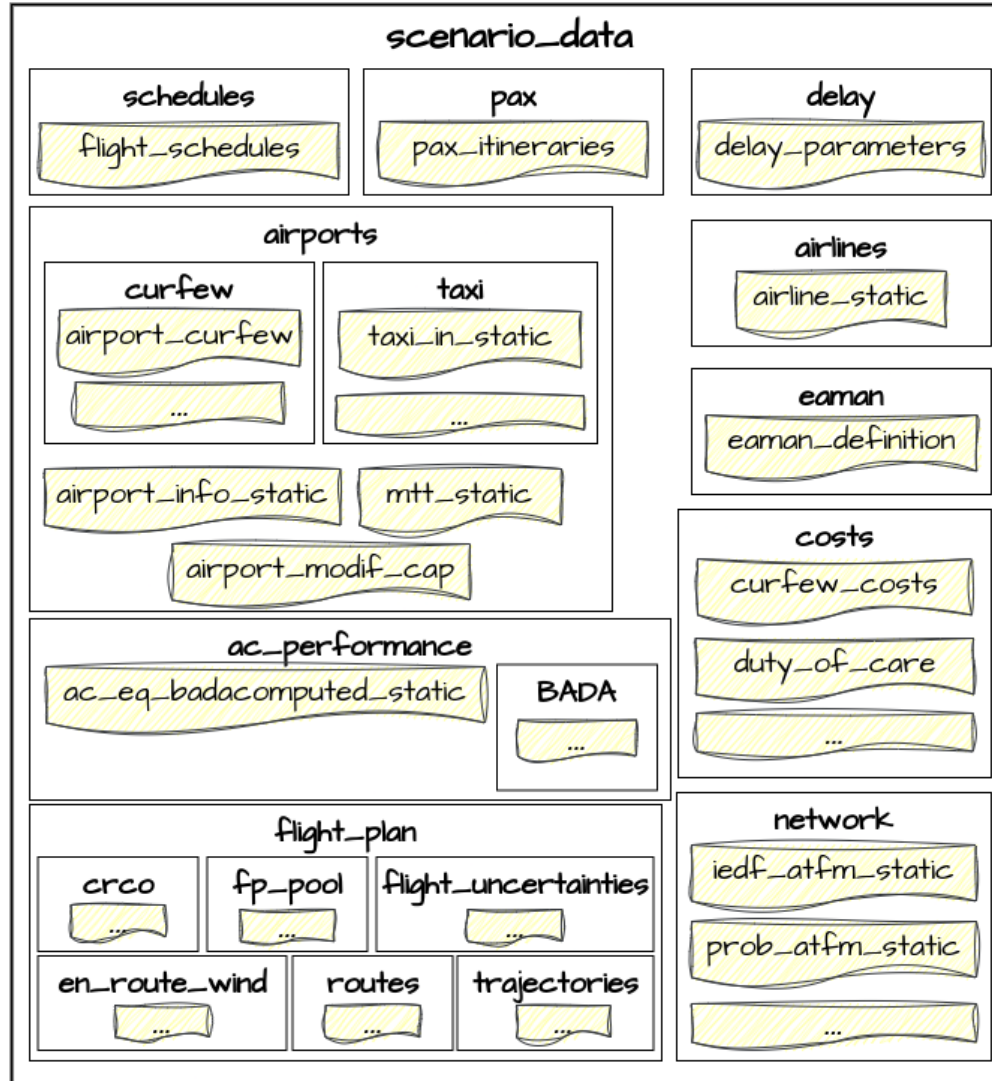 scenario_data
schedules
flight_schedules
pax
pax_itineraries
delay
delay_parameters
airports
curfew
airport_curfew
...
taxi
taxi_in_static
...
airport_info_static
mtt_static
airport_modif_cap
airlines
airline_static
eaman
eaman_definition
costs
curfew_costs
duty_of_care
...
ac_performance
ac_eq_badacomputed_static
BADA
...
flight_plan
crco
...
fp_pool
...
flight_uncertainties
...
en_route_wind
...
routes
...
trajectories
...
network
iedf_atfm_static
prob_atfm_static
...